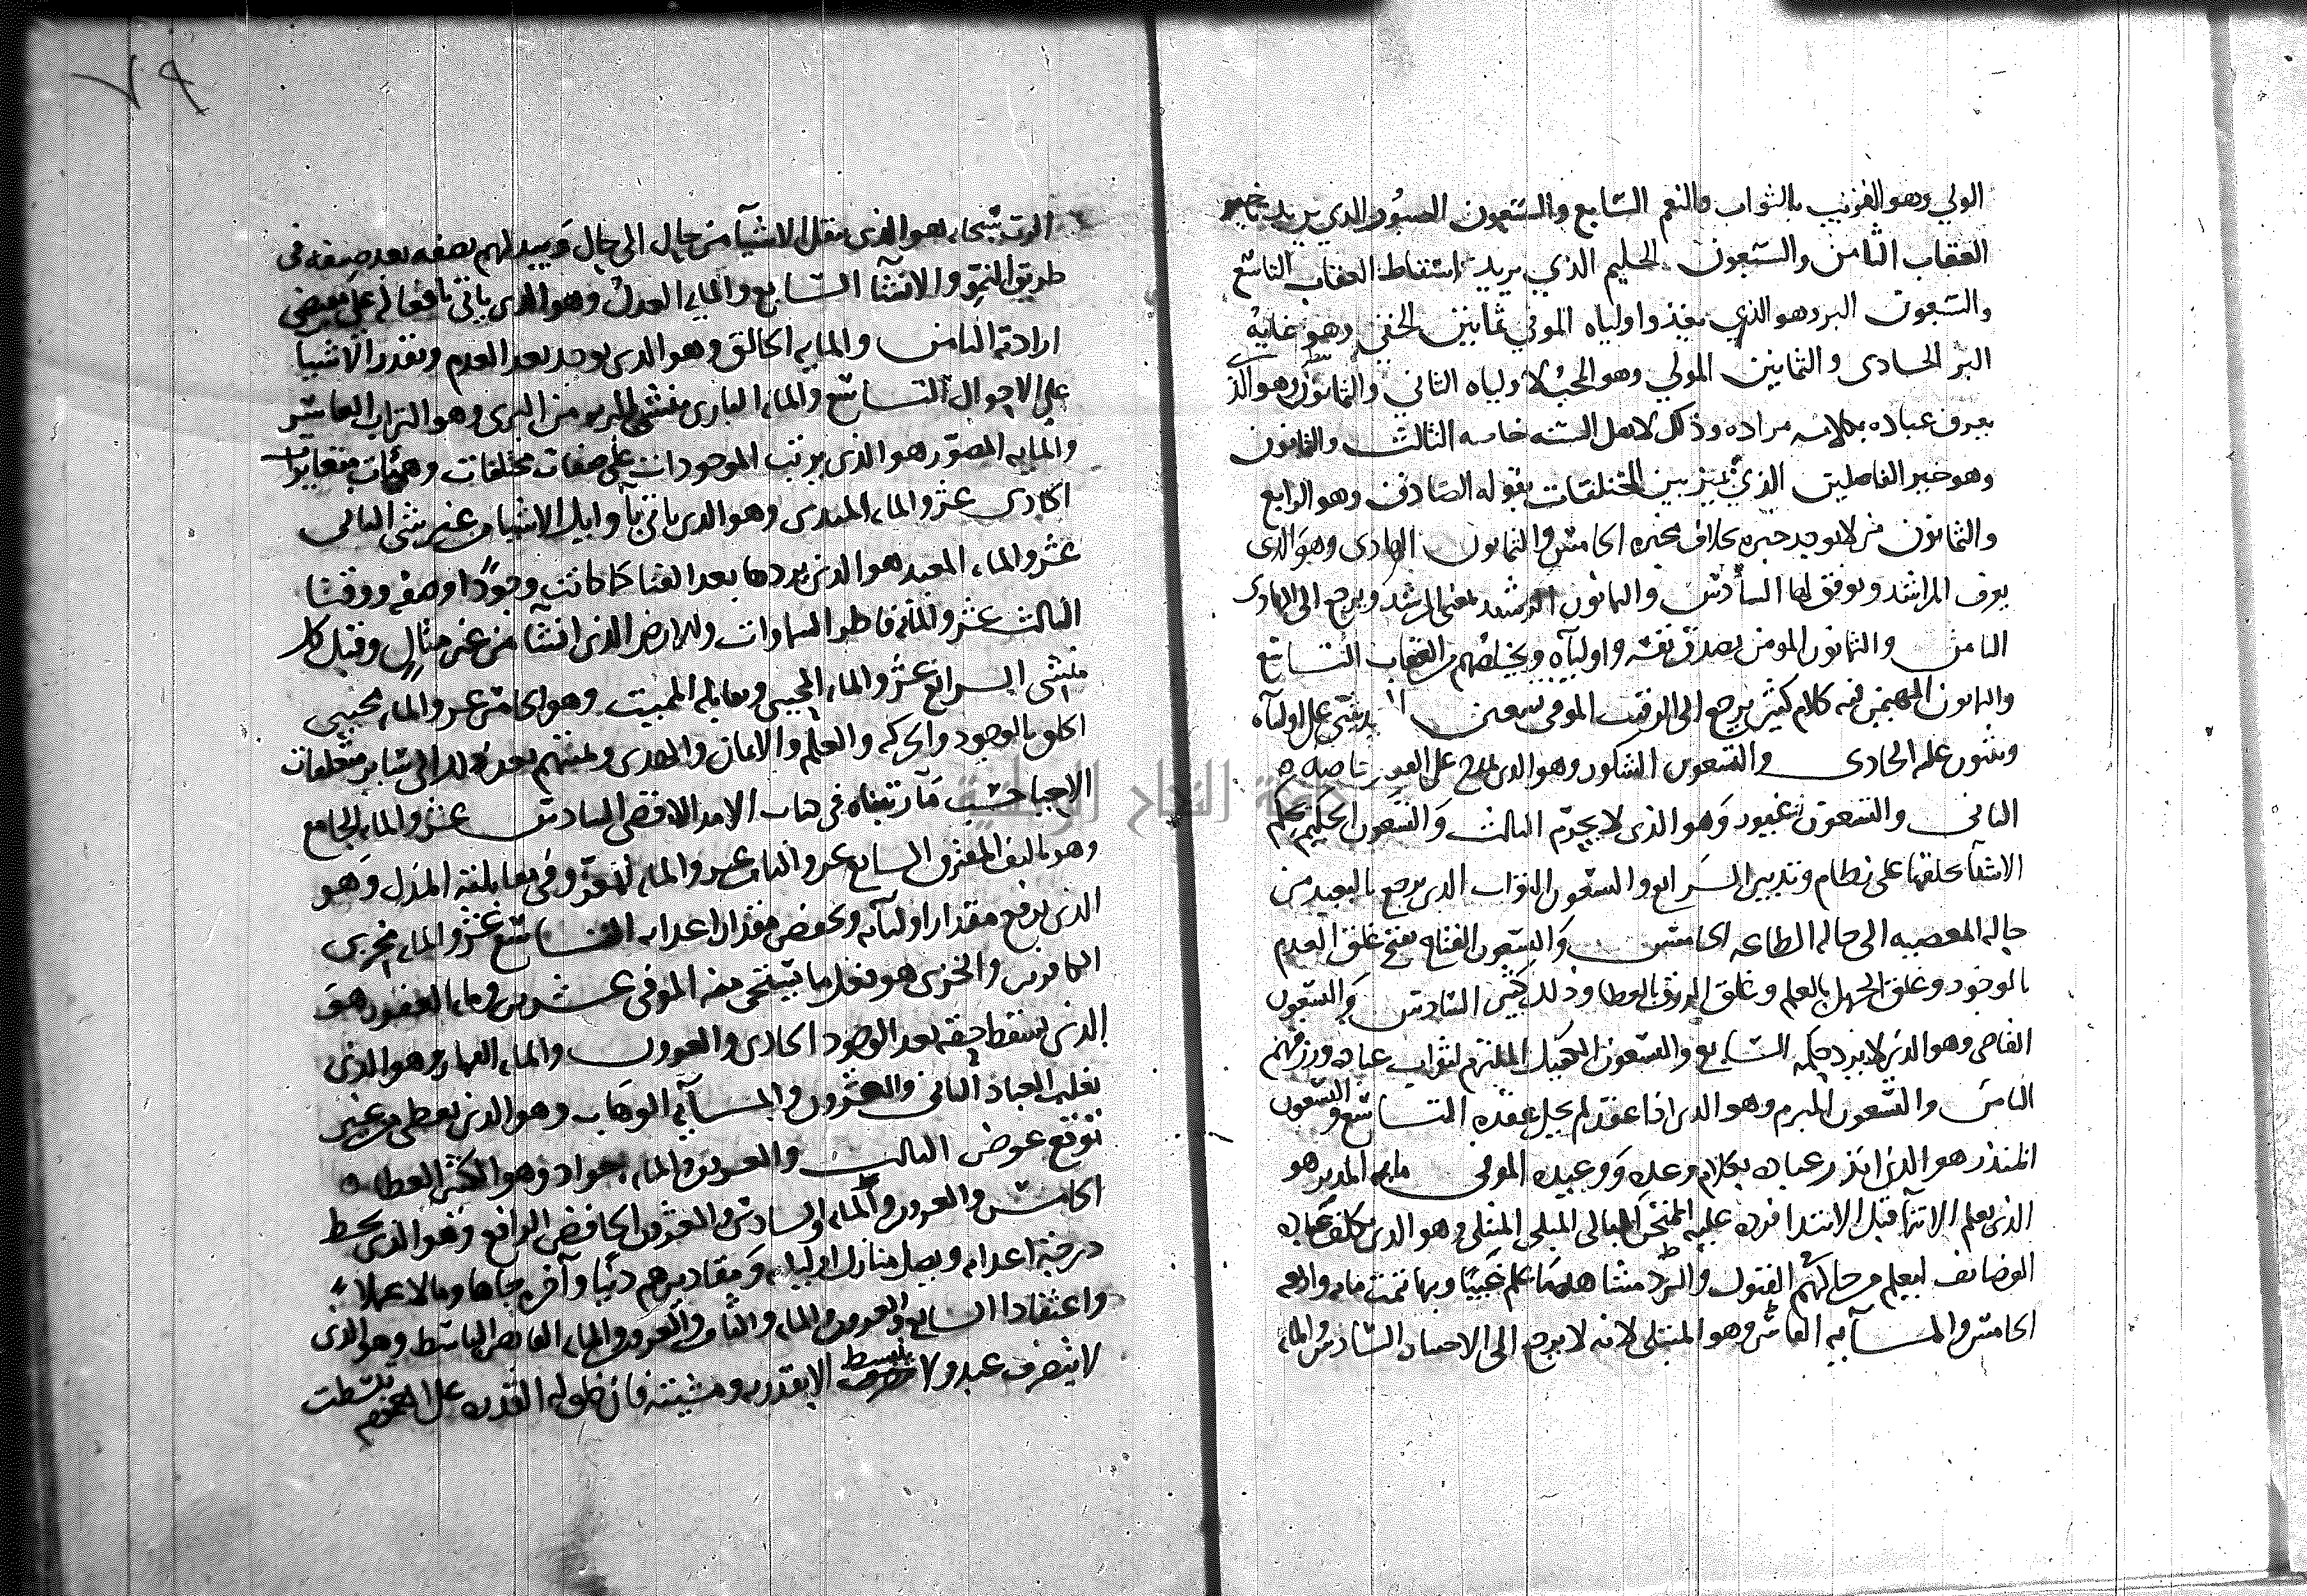 الولي وهو القريب بالثواب والنعم السابع والسبعون الصبور الذي يريد تاخير
العقاب الثامن والسبعون الحليم الذي يريد اسقاط العقاب التاسع
والسبعون البر وهو الذي اولياه الموفي ثمانين الحفي وهو غاية
البر الحادى والثمانين المولي وهو المحب لاولياه الثاني والثمانون وهو الذ
يعرف عباده بكلامه مراده وذلك لاهل السنه خاصه الثالث والثمانون
وهو خير الفاصلين الذي يميز بين المختلفات بقوله الصادق وهو الرابع
والثمانون من لا يوجد خبره بخلاف مخبره الخامس والثمانون الهادى وهو الذى
يعرف المراشد ويوفق لها السادس والثمانون الرشيد بمعنى المرشد ويرجع الى الهادى
الثامن والثمانون المومن يصدق نفسه واولياه ويخلصهم من العقاب التاسع
والثمانون المهيمن فيه كلام كثير يرجع الى الرقيب الموفى تسعين يثني على اولياه
ويثنون عليه الحادى والتسعون الشكور وهو الذى يمدح على الفعل خاصه
الثانى والتسعون غيور وهو الذى لا يحرم الثالث والتسعون الحكيم يحكم
الاشيا بخلقها على نظام وتدبير الرابع والتسعون التواب الذى يرجع بالعبد من
حاله المعصيه الى حاله الطاعه الخامس والتسعون الفتاح يفتح غلق العدم
بالوجود وغلق الجهل بالعلم وغلق الرزق بالعطا وذلك كثير السادس والتسعون
القاضى وهو الذى لا يرد حكمه السابع والتسعون الكفيل الملتزم لثواب عباده ورزقهم
الثامن والتسعون المبرم وهو الذى اذا عقد لم يحل عقده التاسع والتسعون
المنذر هو الذى انذر عباده بكلامه وعده ووعيده الموفى مايه المدبر هو
الذى يعلم الانتها قبل الابتدا فيرد عليه الممتحن البالى المبلى المبتلى وهو الذى يكلف عباده
الوضائف ليعلم من حالهم القبول والرد مشاهده كما علم غيبا وبها تمت مايه واربعه
الخامس والمايه العاشر وهو المبتلى لانه لا يرجع الى الاحسان السادس والمايه
الرب سبحانه هو الذى ينقل الاشيا من حال الى حال ويبدلهم بصفه بعد صفه فى
طريق النمو والانشا السابع والمايه العدل وهو الذى ياتى بافعاله على مقتضى
ارادته الثامن والمايه الخالق وهو الذى يوجد بعد العدم ويقدر الاشيا
على الاحوال التاسع والمايه البارى منشى البريه من البرى وهو التراب العاشر
والمايه المصور هو الذى يرتب الموجودات على صفات مختلفات وهيئات متغايرات
الحادى عشر والمايه المبدى وهو الذى ياتى باوايل الاشيا من غير شى الثانى
عشر والمايه المعيد هو الذى يردها بعد الفنا كما كانت وجودا وصفه ووقتا
الثالث عشر والمايه فاطر السماوات والارض الذى انشا من غير مثال وقبل كل
منشى الرابع عشر والمايه المحيى ويقابله المميت وهو الخامس عشر والمايه يحيى
الخلق بالوجود والحركه والعلم والايمان والهدى ويميتهم بعد ذلك الى ساير متعلقات
الاحيا حسب ما رتبناه فى كتاب الامد الاقصى السادس عشر والمايه الجامع
وهو تاليف المفترق السابع عشر والثامن عشر والمايه المعز وفى مقابلته المذل وهو
الذى يرفع مقدار اوليائه ويخفض مقدار اعدايه التاسع عشر والمايه مخزى
الكافرين والخزى هو فعل ما يستحى منه الموفى عشرين ومايه الغفور هو
الذى يسقط حقه بعد الوجود الحادى والعشرون والمايه القهار وهو الذى
يغلب العباد الثانى والعشرون والمايه الوهاب وهو الذى يعطى من غير
توقع عوض الثالث والعشرون والمايه جواد وهو الكثير العطا
الخامس والعشرون والمايه والسادس والعشرون الخافض الرافع وهو الذى يحط
درجة اعدايه ويعلى منازل اوليايه ومقاديرهم دنيا وآخره جاها ومالا عملا
واعتقادا السابع والعشرون والمايه والثامن والعشرون والمايه القابض الباسط وهو الذى
لا يتصرف عبد ولا ينبسط الا بقدرته ومشيئته فان خلق له القدره على العموم تبسطت